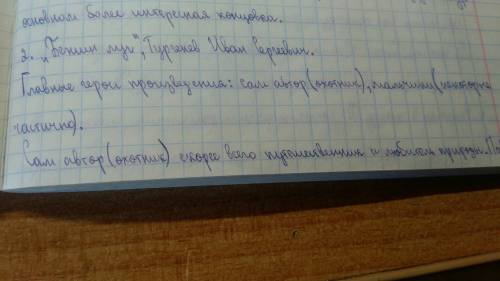 основном более интересная концовка.
2. "Бежин луг", Тургенев Иван Сергеевич.
Главные герои произведения: сам автор(охотник), мальчики(некоторые
частично).
Сам автор(охотник) скорее всего путешественник и любитель природы.